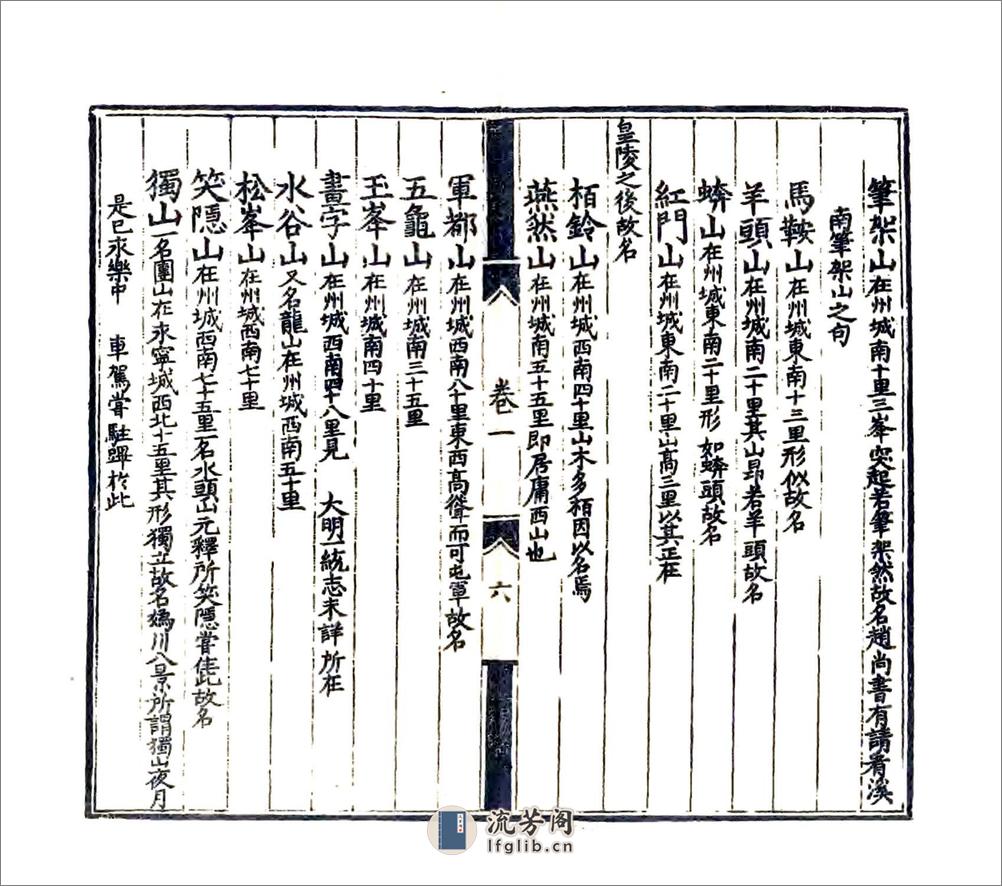 筆架山在州城南十里三峯突起若筆架然故名趙尚書有請看溪
南筆架山之句
馬鞍山在州城東南十三里形似故名
羊頭山在州城南二十里其山昂若羊頭故名
螃山在州城東南二十里形如螃頭故名
紅門山在州城東南二十里山高三里以其正在
皇陵之後故名
栢鈴山在州城西南四十里山木多栢因以名焉
燕然山在州城南五十五里即居庸西山也
卷一
六
軍都山在州城西南八十里東西高聳而可屯軍故名
五龜山在州城南三十五里
玉峯山在州城南四十里
畫字山在州城西南四十八里見 大明一統志未詳所在
水谷山又名龍山在州城西南五十里
松峯山在州城西南七十里
笑隱山在州城西南七十五里一名水頭山元釋所笑隱嘗住此故名
獨山一名團山在永寧城西北十五里其形獨立故名媯川八景所謂獨山夜月
是已永樂中 車駕嘗駐蹕於此
流芳阁
lfglib.cn